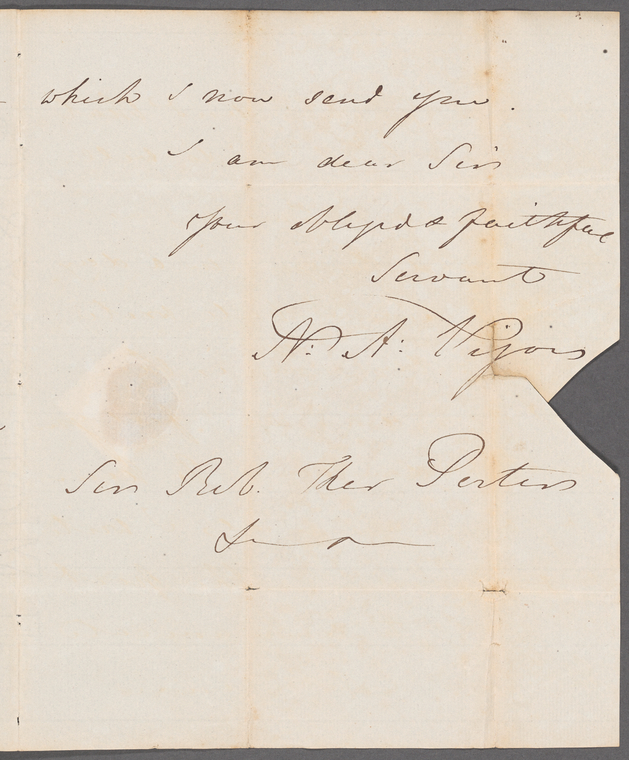 which I now send you.
I am dear Sir
your obliged & faithful
Servant
N: A: Vigors
Sir Rob. Ker Porter